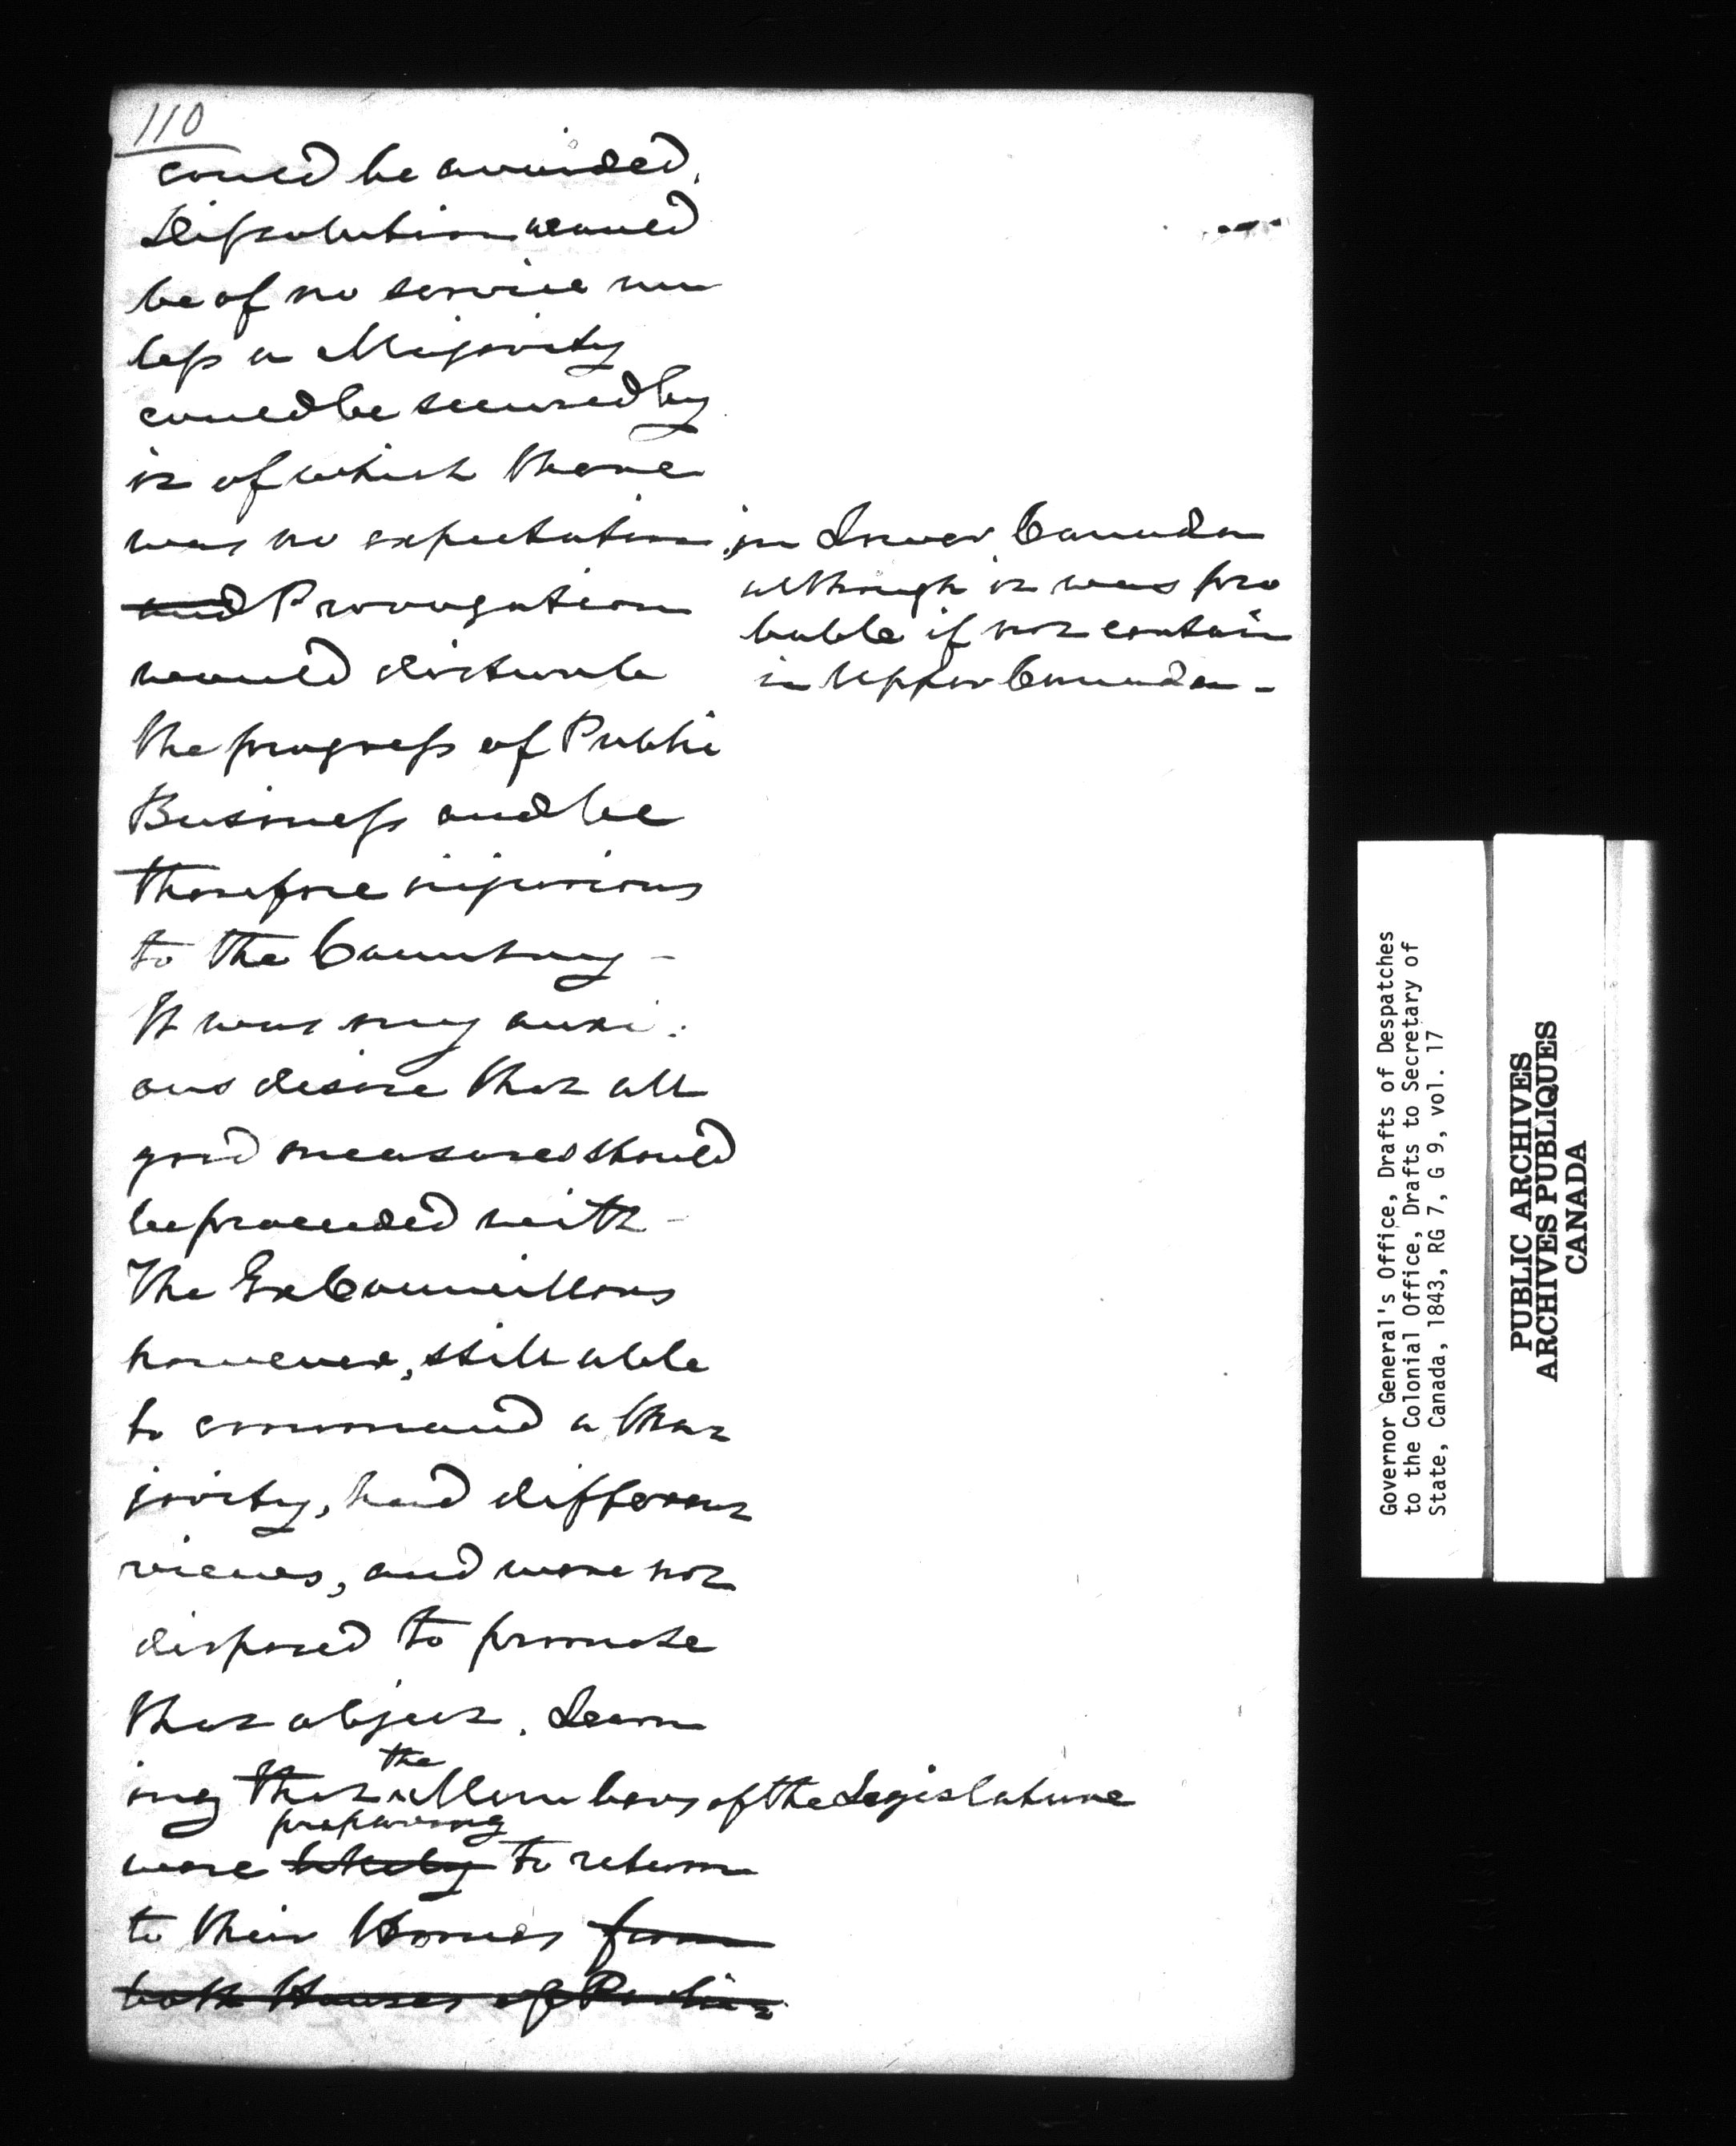 110
could be avoided.
Dissolution would
be of no service un
less a Majority
could be secured by
it of which there
was no expectation, in Lower Canada
although it was pro
bable if not certain
in Upper Canada -
and Prorogation
would disturb
the progress of Public
Business and be
therefore injurious
to the Country -
It was my anxi:
ous desire that all
good measures should
be proceeded with -
The Ex Councillors
however, still able
to command a Ma
jority, had different
views, and were not
disposed to promote
that object. Learn
ing that the Members of the Legislature
preparing
were likely to return
to their Homes from
both Houses of Parliat
Governor General's Office, Drafts of Despatches
to the Colonial Office, Drafts to Secretary of
State, Canada, 1843, RG 7, G 9, vol. 17
PUBLIC ARCHIVES
ARCHIVES PUBLIQUES
CANADA